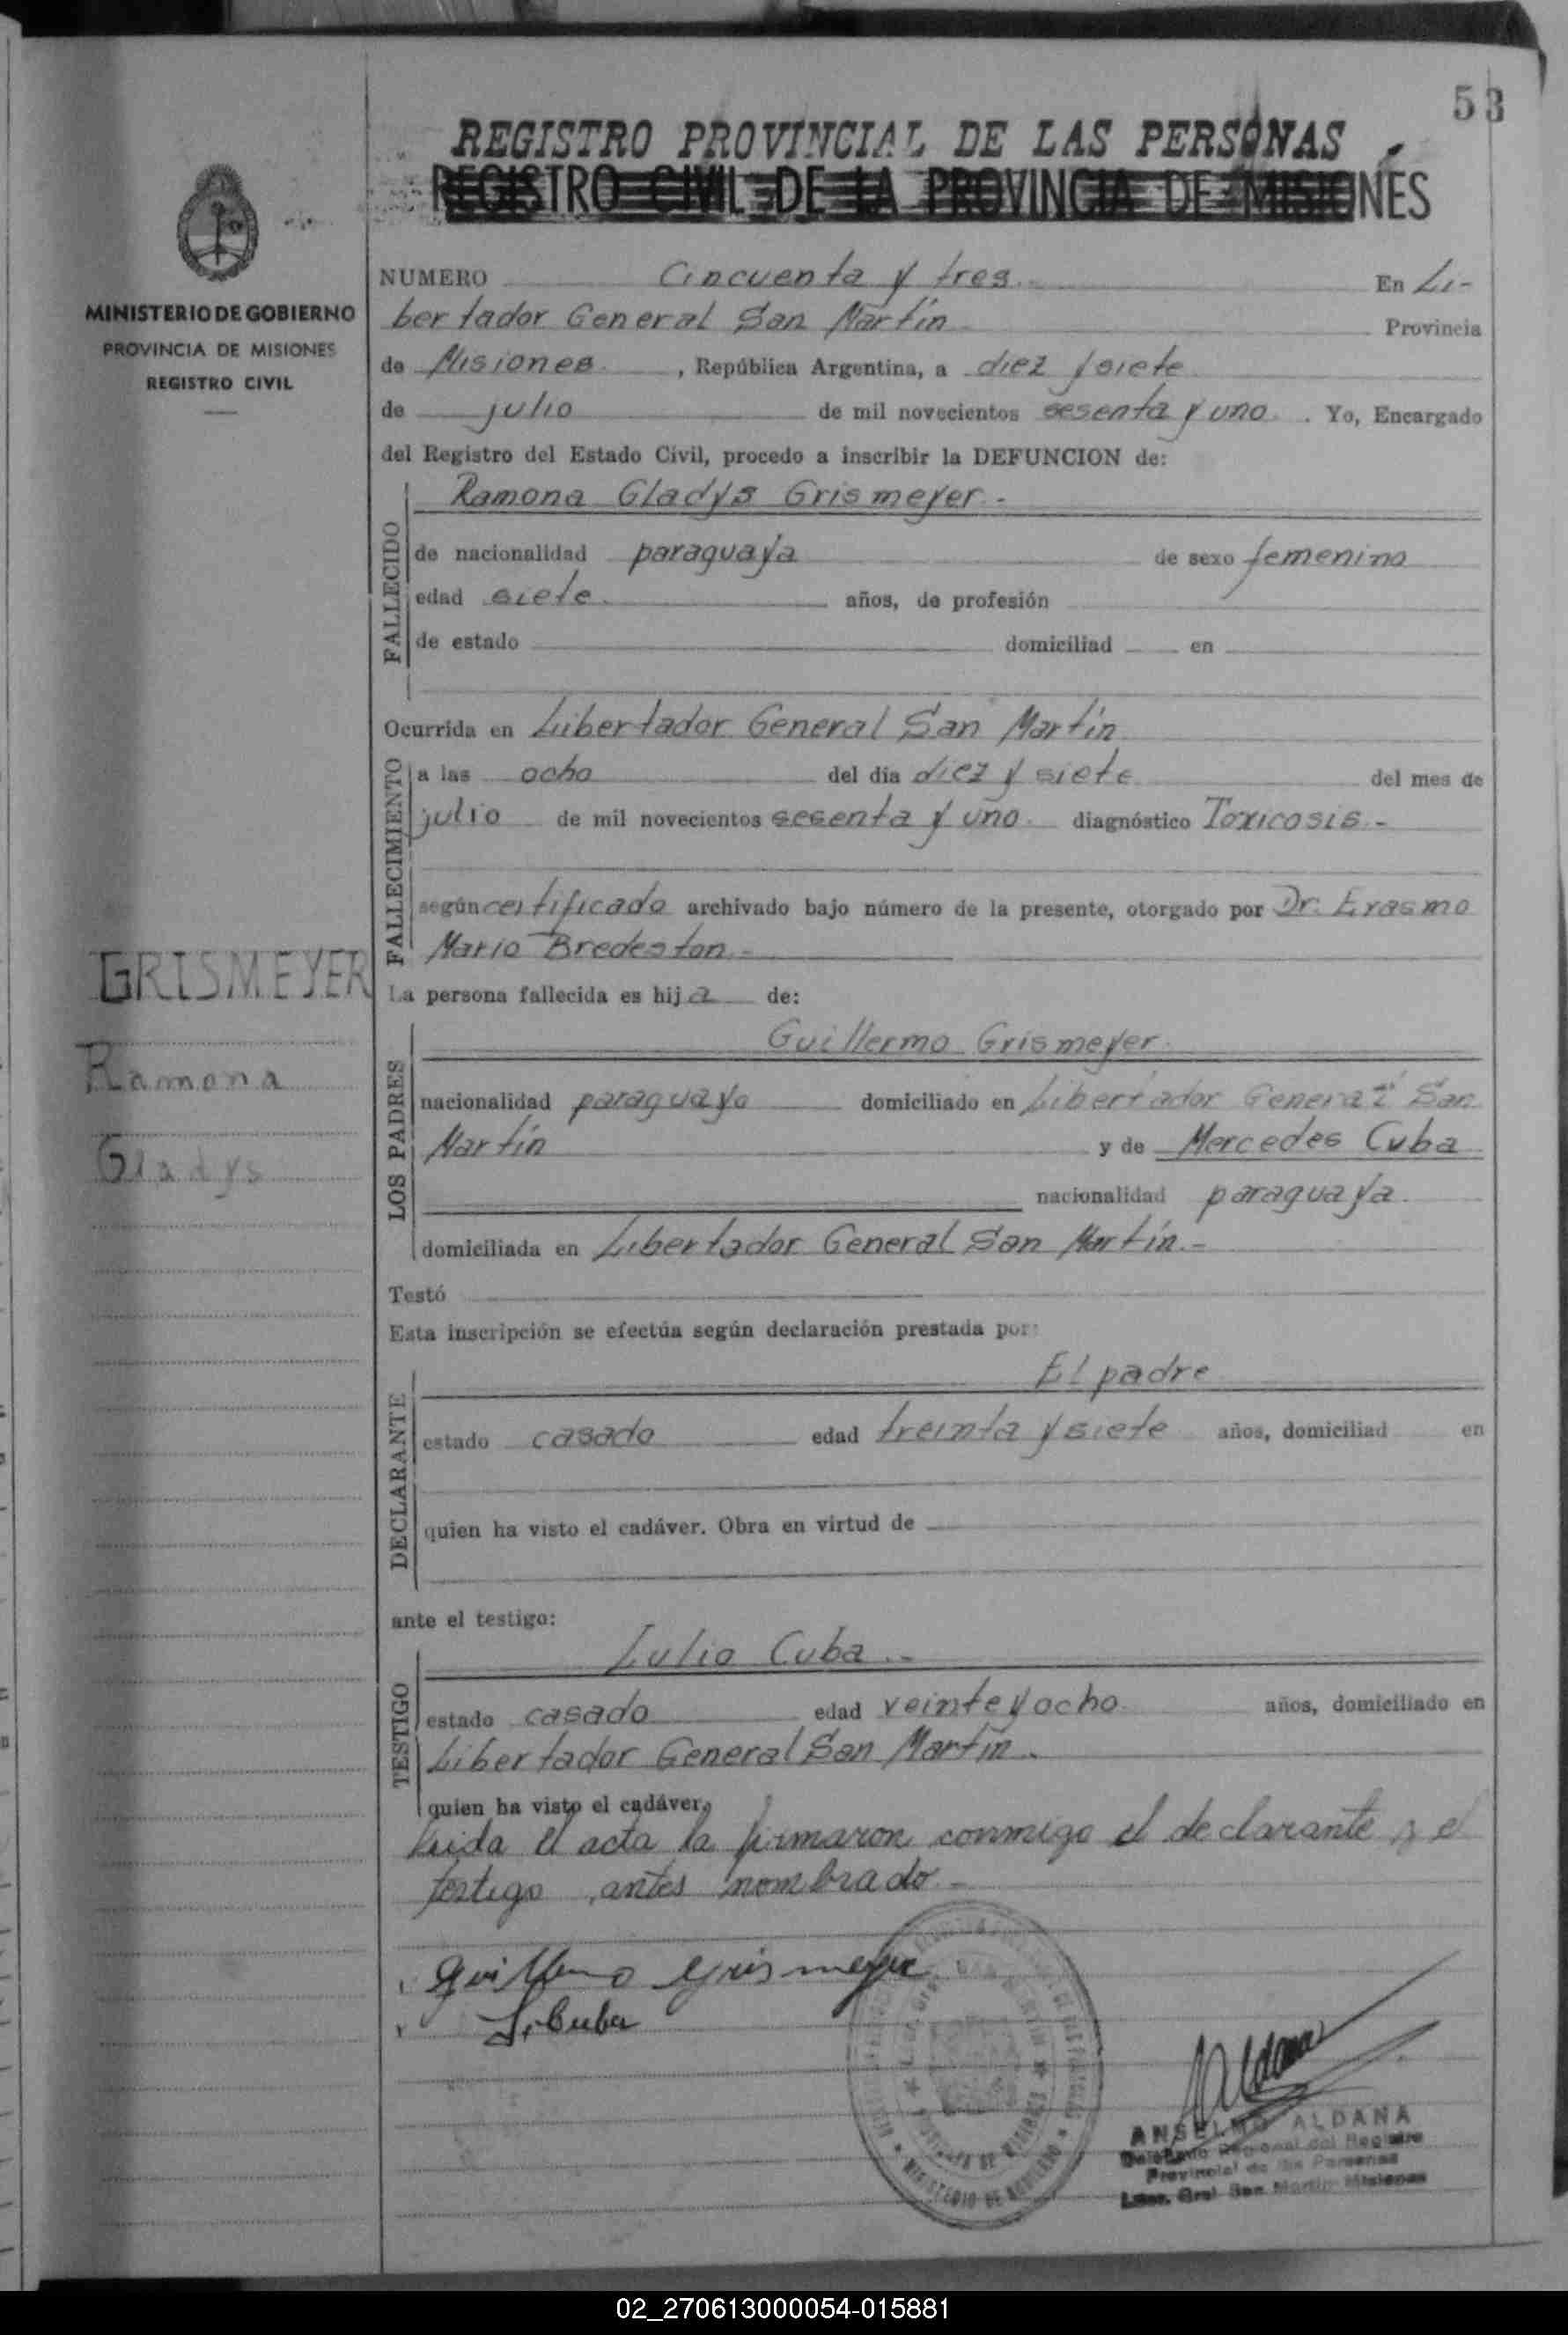 53
REGISTRO PROVINCIAL DE LAS PERSONAS
REGISTRO CIVIL DE LA PROVINCIA DE MISIONES
MINISTERIO DE GOBIERNO
PROVINCIA DE MISIONES
REGISTRO CIVIL
NUMERO Cincuenta y tres En Li-
bertador General San Martín Provincia
de Misiones , República Argentina, a diez y siete
de julio de mil novecientos sesenta y uno . Yo, Encargado
del Registro del Estado Civil, procedo a inscribir la DEFUNCION de:
FALLECIDO
Ramona Gladys Grismeyer.-
de nacionalidad paraguaya de sexo femenino
edad siete años, de profesión
de estado domiciliad en
Ocurrida en Libertador General San Martín
FALLECIMIENTO
a las ocho del día diez y siete del mes de
julio de mil novecientos sesenta y uno diagnóstico Toxicosis.-
según certificado archivado bajo número de la presente, otorgado por Dr. Erasmo
Mario Bredeston.-
GRISMEYER
Ramona
Gladys
La persona fallecida es hija de:
LOS PADRES
Guillermo Grismeyer
nacionalidad paraguayo domiciliado en Libertador General San
Martín y de Mercedes Cuba
nacionalidad paraguaya
domiciliada en Libertador General San Martín.-
Testó
Esta inscripción se efectúa según declaración prestada por:
DECLARANTE
El padre
estado casado edad treinta y siete años, domiciliad en
quien ha visto el cadáver. Obra en virtud de
ante el testigo:
TESTIGO
Lulio Cuba.-
estado casado edad veinte y ocho años, domiciliado en
Libertador General San Martín.
quien ha visto el cadáver,
Leida el acta la firmaron conmigo el declarante y el
testigo antes nombrado.-
Guillermo Grismeyer
L. Cuba
Aldana
MINISTERIO DE GOBIERNO
ANSELMO ALDANA
Delegado Regional del Registro
Provincial de las Personas
Lber. Gral San Martín Misiones
02_270613000054-015881